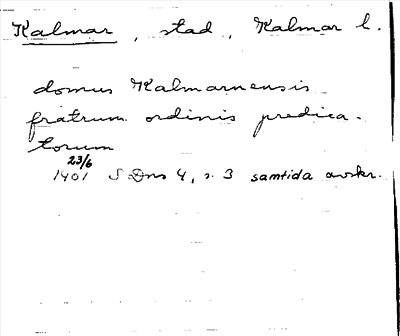 Kalmar, stad, Kalmar l.
domus Kalmarnensis
fratrum ordinis predica-
torum
23/6
1401 SDns 4, s. 3 samtida avskr.